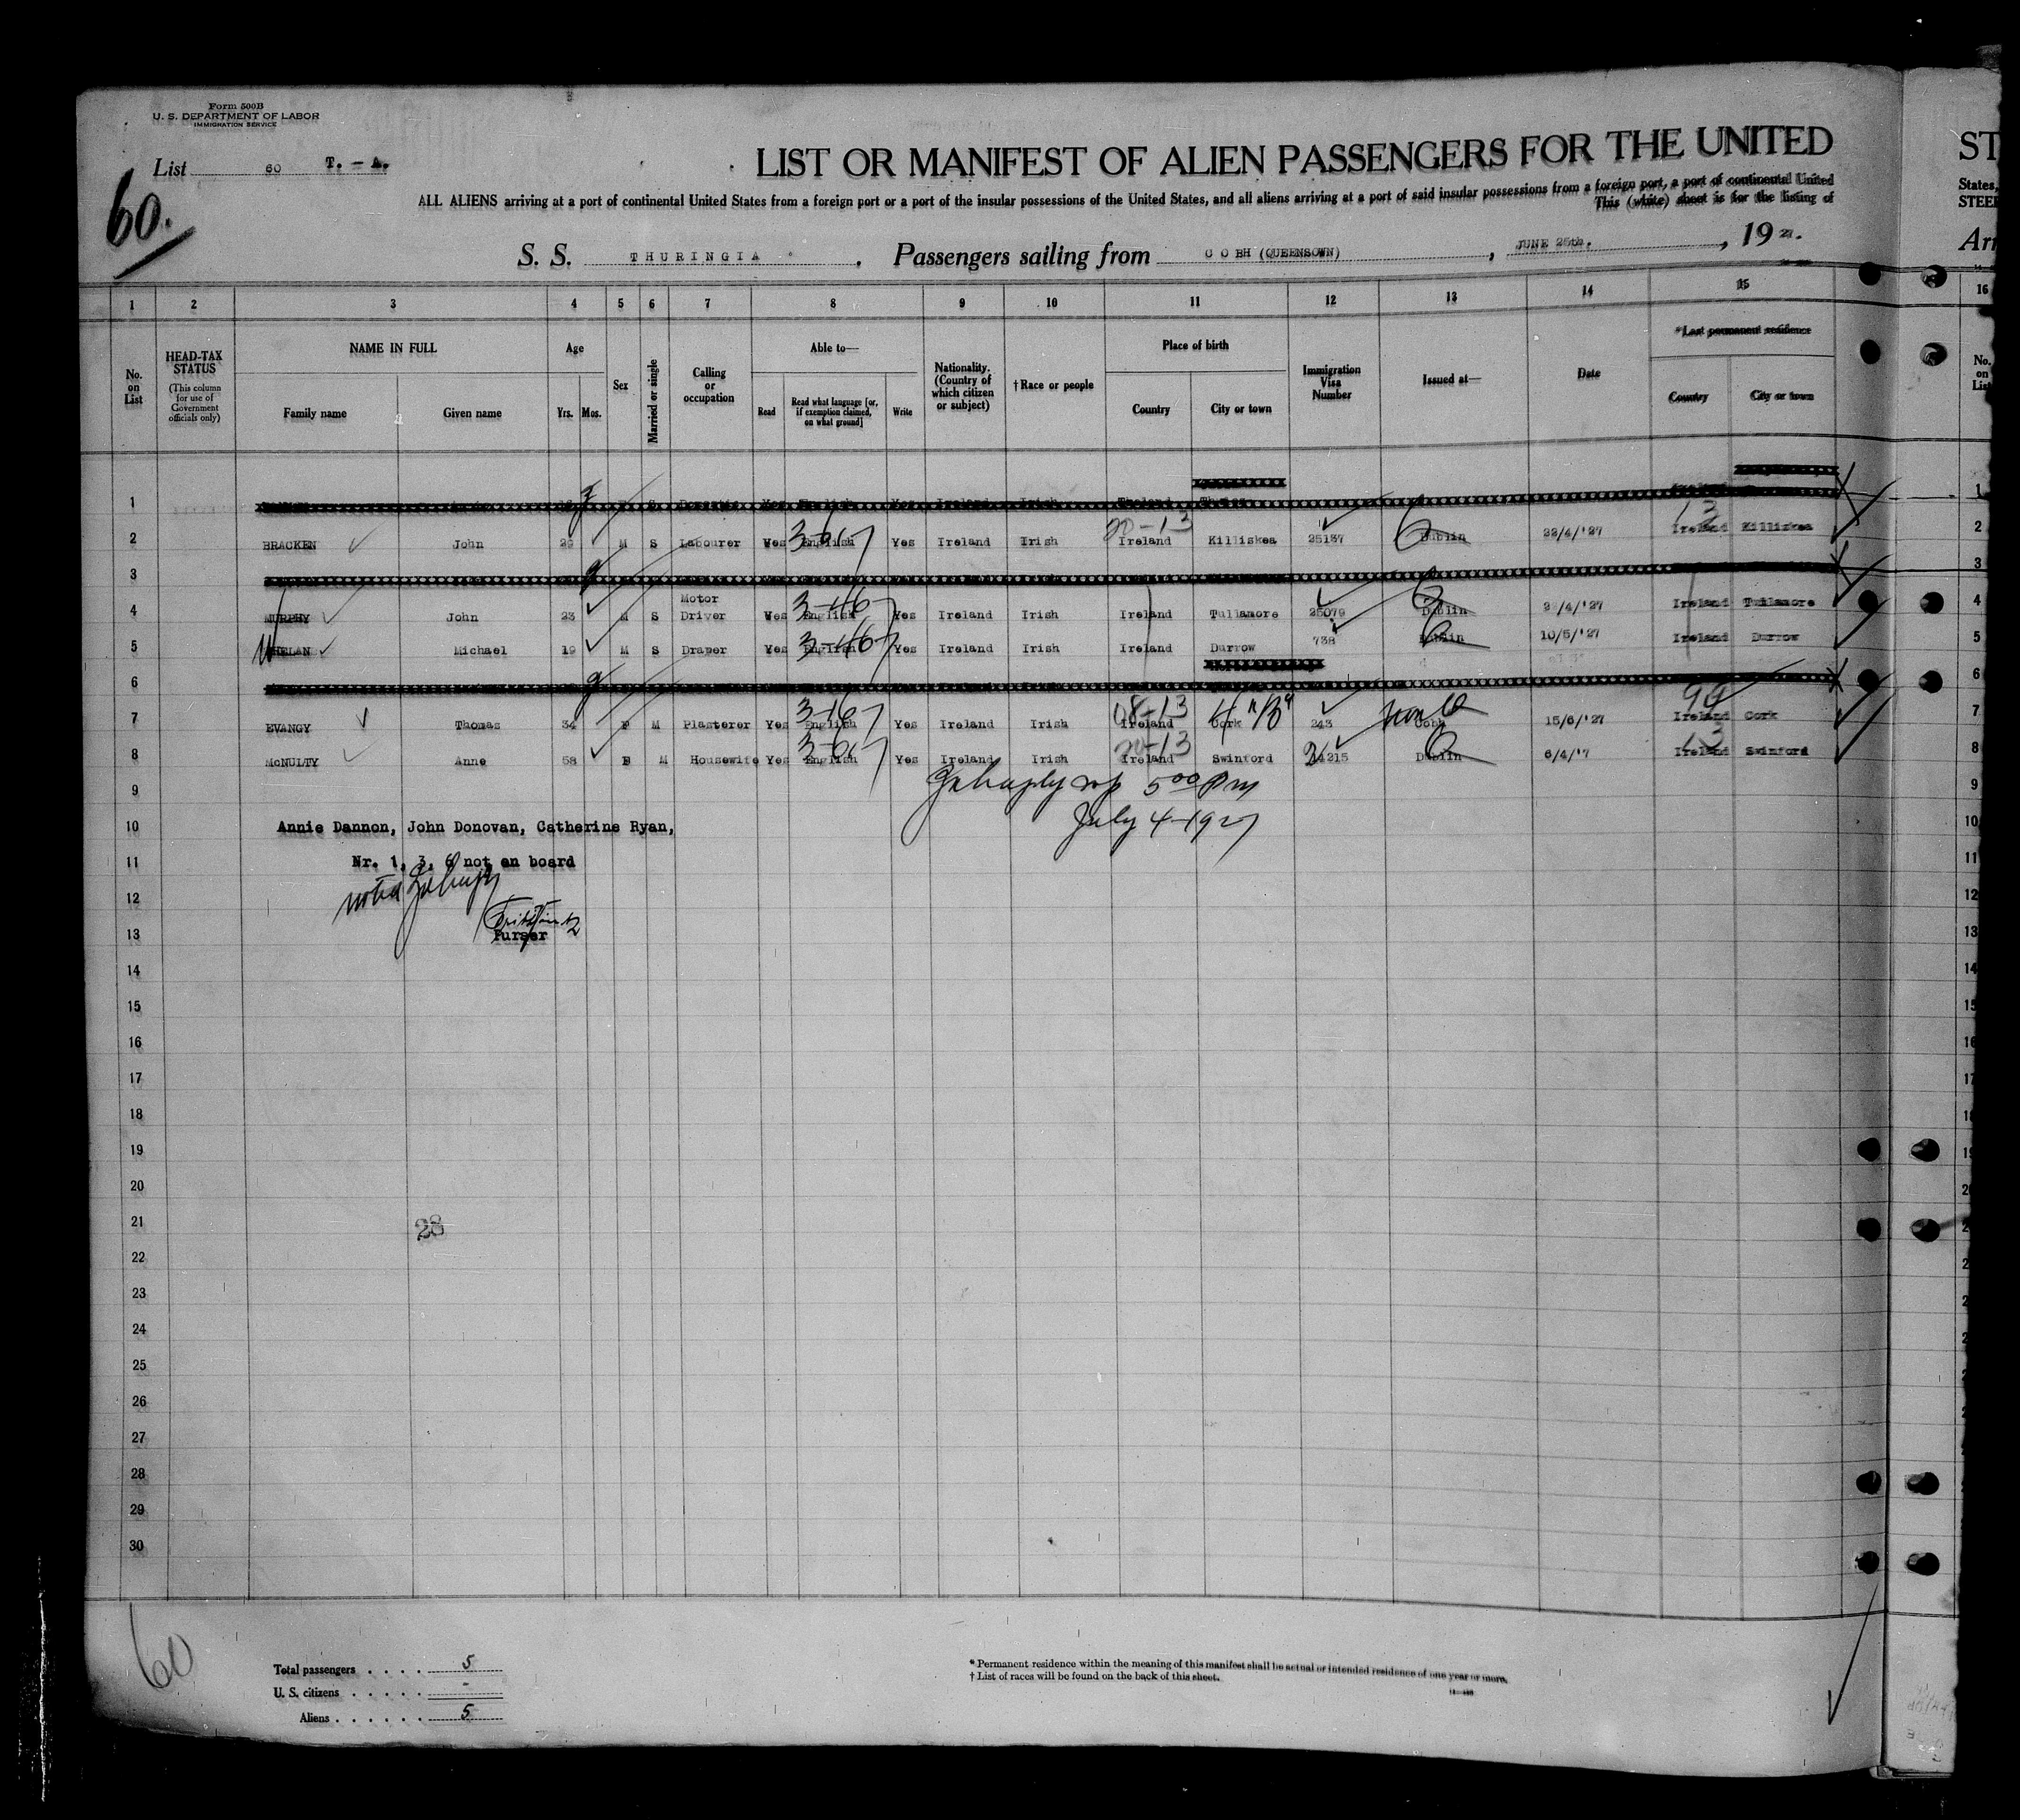 Form 500B
U. S. DEPARTMENT OF LABOR
IMMIGRATION SERVICE
List 60 T. - A.
60.
LIST OR MANIFEST OF ALIEN PASSENGERS FOR THE UNITED
ALL ALIENS arriving at a port of continental United States from a foreign port or a port of the insular possessions of the United States, and all aliens arriving at a port of said insular possessions from a foreign port, a port of continental United
This (white) sheet is for the listing of
S. S. THURINGIA . Passengers sailing from COBH (QUEENSOWN) , JUNE 25th. , 1927.
ST
States,
STEER
Arr
1 2 3 4 5 6 7 8 9 10 11 12 13 14 15 16
No. on List
HEAD-TAX STATUS (This column for use of Government officials only)
NAME IN FULL
Family name Given name
Age
Yrs. Mos.
Sex
Married or single
Calling or occupation
Able to—
Read Read what language [or, if exemption claimed, on what ground] Write
Nationality. (Country of which citizen or subject)
† Race or people
Place of birth
Country City or town
Immigration Visa Number
Issued at—
Date
* Last permanent residence
Country City or town
No. on List
1 S Domestic Yes English Yes Ireland Irish Ireland 1
20-13 13
2 BRACKEN John 29 M S Labourer Yes English Yes Ireland Irish Ireland Killiskea 25137 Dublin 22/4/'27 Ireland Killiskea 2
3 3
4 MURPHY John 23 M S Motor Driver Yes English Yes Ireland Irish Ireland Tullamore 25079 Dublin /4/'27 Ireland Tullamore 4
5 WHELAN Michael 19 M S Draper Yes English Yes Ireland Irish Ireland Durrow 738 Dublin 10/5/'27 Ireland Durrow 5
6 6
7 EVANGY Thomas 34 M Plasterer Yes English Yes Ireland Irish Ireland Cork 243 Cobh 15/6/'27 Ireland Cork 7
20-13 13
8 McNULTY Anne 58 F M Housewife Yes English Yes Ireland Irish Ireland Swinford 24215 Dublin 6/4/'7 Ireland Swinford 8
9 5 00 Pm
10 Annie Dannon, John Donovan, Catherine Ryan, July 4-1927
11 Nr. 1, 3, 6 not on board
12
13 Purser
14
15
16
17
18
19
20
21 28
22
23
24
25
26
27
28
29
30
60
Total passengers . . . . 5
U. S. citizens . . . . . -
Aliens . . . . . . 5
* Permanent residence within the meaning of this manifest shall be actual or intended residence of one year or more.
† List of races will be found on the back of this sheet.